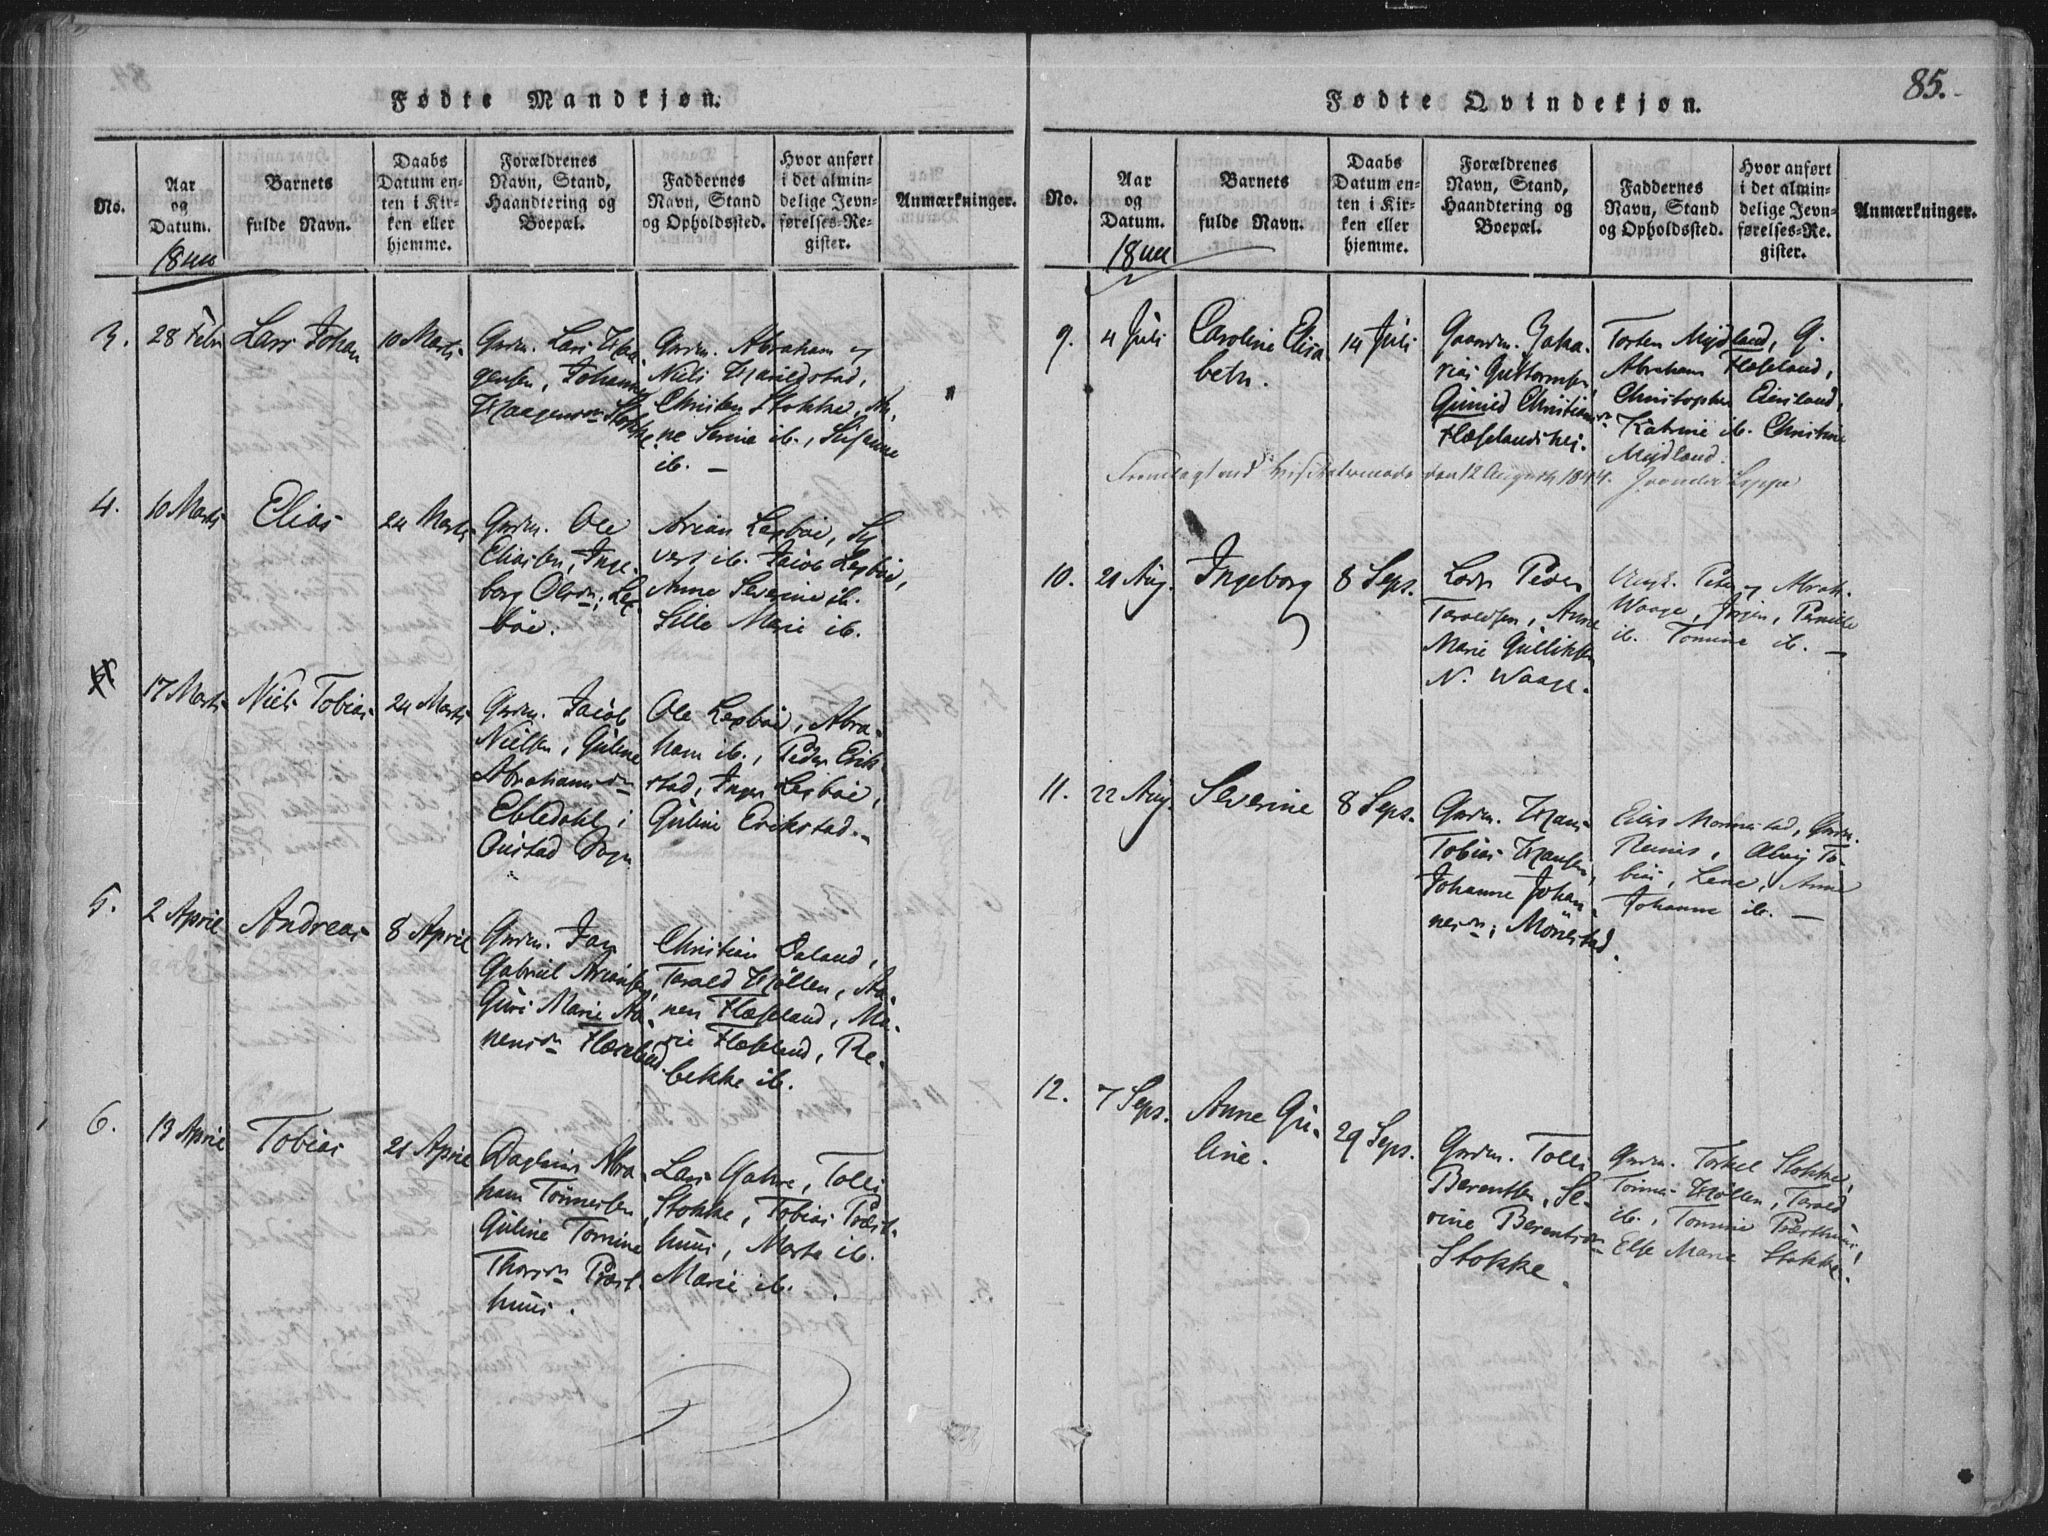 Fødte Mandkjøn.
No.
Aar og Datum.
Barnets fulde Navn.
Daabs Datum enten i Kirken eller hjemme.
Forældrenes Navn, Stand, Haandtering og Boepæl.
Faddernes Navn, Stand og Opholdssted.
Hvor anført i det almindelige Jevnførelses-Register.
Anmærkninger.
1844
3.
28 Febr
Lars Johan
10 Marts
Gmdm. Lars Haa-
gensen, Johanne
Haagensdn Stokke
Gmdm. Abraham og
Niels Harildstad,
Christen Stokke, An-
ne Serine ib., Susanne
ib. —
4.
10 Marts
Elias
24 Marts
Gmdm. Ole
Eliassen, Inge-
borg Olsdn, Lex-
böe.
Arian Lexböe, Sy
vert ib. Jacob Lexböe,
Anne Severine ib.
Sille Marie ib.
17 Marts
Niels Tobias
24 Marts
Gmdm. Jacob
Nielsen, Guline
Abrahamsdn
Ebledahl i
Öiestad Sogn
Ole Lexböe, Abra-
ham ib., Peder Erik-
stad, Inger Lexböe,
Guline Erikstad.
5.
2 April
Andreas
8 April
Gmdm. Jan
Gabriel Ariansen,
Guri Marie Aa-
nensdn Flæseland.
Christian Daland,
Tarald Möllen, Aa-
nen Flæseland, Ma-
rie Flæseland, Re-
bekke ib.
6.
13 April
Tobias
21 April
Daglein Abra-
ham Tönnessen
Guline Tomine
Thorsdn Præst-
huus.
Lars Gahre, Tolli
Stokke, Tobias Præst-
huus, Marte ib.
Marie ib.
85.
Fødte Qvindekjøn.
No.
Aar og Datum.
Barnets fulde Navn.
Daabs Datum enten i Kirken eller hjemme.
Forældrenes Navn, Stand, Haandtering og Boepæl.
Faddernes Navn, Stand og Opholdssted.
Hvor anført i det almindelige Jevnførelses-Register.
Anmærkninger.
1844
9.
4 Juli
Caroline Elisa
beth.
14 Juli
Gaardm. Zaka-
rias Guttormsen,
Gunild Christiansdn
Flæselandshei.
Torsten Mydland, G.
Abraham Flæseland,
Christopher Eieland,
Katrine ib. Christine
Mydland.
Fremlagt ved Visitatsen den 12 August 1844.
10.
21 Aug.
Ingeborg
8 Sept.
Lods Peder
Taraldsen, Anne
Marie Gulliksen
N. Waage.
Ungk. Peter og Abrah.
Waage, Jörgen, Pernille
ib. Tomine ib. —
11.
22 Aug.
Severine
8 Sept.
Gmdm. Hans
Tobias Hansen,
Johanne Johan-
nesdn, Mönestad.
Eilis Mönnestad, Gmdm.
Reiers, Alvig To-
bias, Lene, Anne
Johanne ib. —
12.
7 Sept.
Anne Gu-
line.
29 Sept.
Gmdm. Tolli
Berentsen, Se-
rine Berentsdn
Stokke.
Gmdm. Torkel Stokke,
Tönnes Möllen, Tarald
ib., Tomine Præsthuus,
Else Marie Stokke.